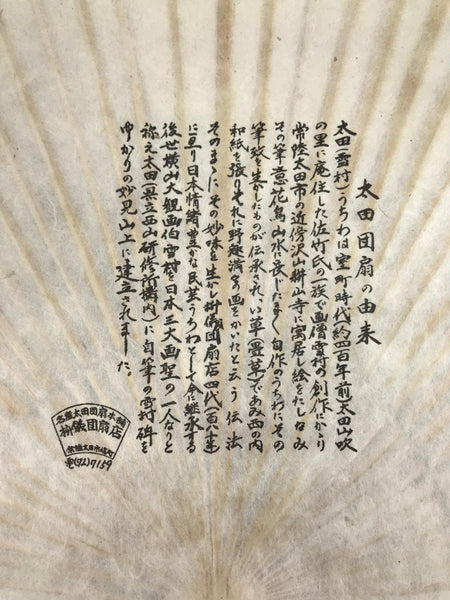 太田団扇の由来
太田(雪村)うちわは室町時代(約四百年前)太田山吹
の里に庵住した佐竹氏の族で画僧雪村の創作にかゝり
常陸太田市の近傍沢山耕山寺に寓居し絵をたしなみ
その筆意花鳥山水に長じたまたま自作のうちわにその
筆致を生かしたものが伝承され、い草(畳草)であみ西の内
和紙を張りそれに野趣満々画をかいたと云う伝法
そのまゝにその妙味を生かし枡儀団扇店四代(百八十年)
に亘り日本情緒豊かな民芸うちわとして今に継承する
後世横山大観画伯雪村を日本三大画聖の一人なりと
称え太田(県立西山研修所構内)に自筆の雪村碑を
ゆかりの妙見山上に建立されました。
名産太田団扇本舗
枡儀団扇店
常陸太田市
(72)7159